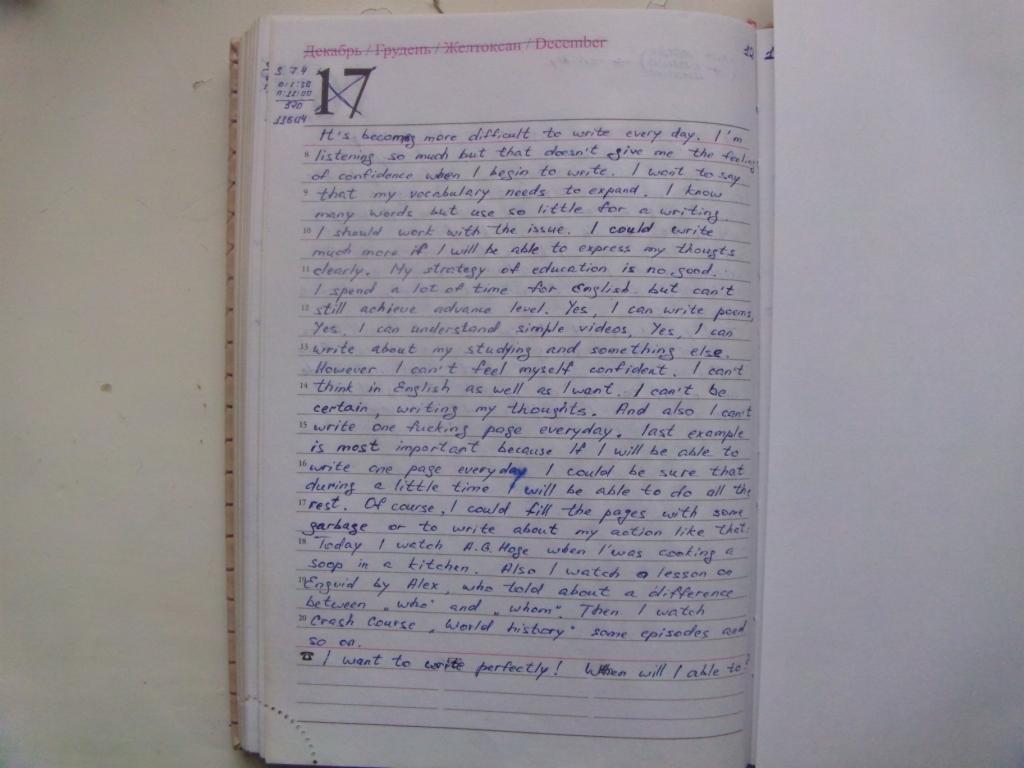 Декабрь / Грудень / Желтоксан / December
17
It's becoming more difficult to write every day. I'm
8 listening so much but that doesn't give me the feeling
of confidence when I begin to write. I want to say
9 that my vocabulary needs to expand. I know
many words but use so little for a writing.
10 I should work with the issue. I could write
much more if I will be able to express my thougts
11 clearly. My strategy of education is no good.
I spend a lot of time for English but can't
12 still achieve advance level. Yes, I can write poems,
Yes, I can understand simple videos, Yes, I can
13 write about my studying and something else.
However I can't feel myself confident. I can't
14 think in English as well as I want. I can't be
certain, writing my thoughts. And also I can't
15 write one fucking page everyday. last example
is most important because If I will be able to
16 write one page everyday I could be sure that
during a little time I will be able to do all the
17 rest. Of course, I could fill the pages with some
garbage or to write about my action like that:
18 Today I watch A.G. Hoge when I was cooking a
soop in a kitchen. Also I watch a lesson on
19 Engvid by Alex, who told about a difference
between „who" and „whom". Then I watch
20 Crash Course „World history" some episodes and
so on.
☎ I want to write perfectly! When will I able to?